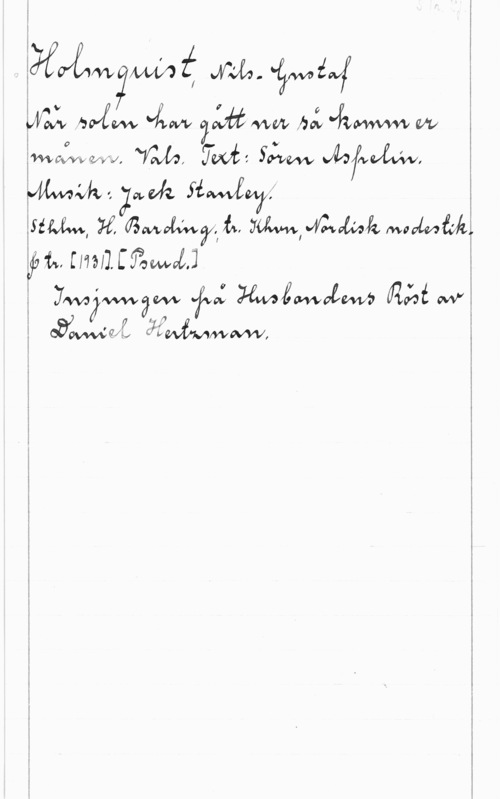 Holmquist, Nils-Gustaf
När solen har gått ner så kommer
månen. Vals. Text: Sören Aspelin.
Musik: Jack Stanley.
Sthlm, H. Barding; tr. Khvn, Nordisk nodestik.
& tr. [1931]. [Pseud.]
Insjungen på Husbondens Röst av
Daniel Hertzman.